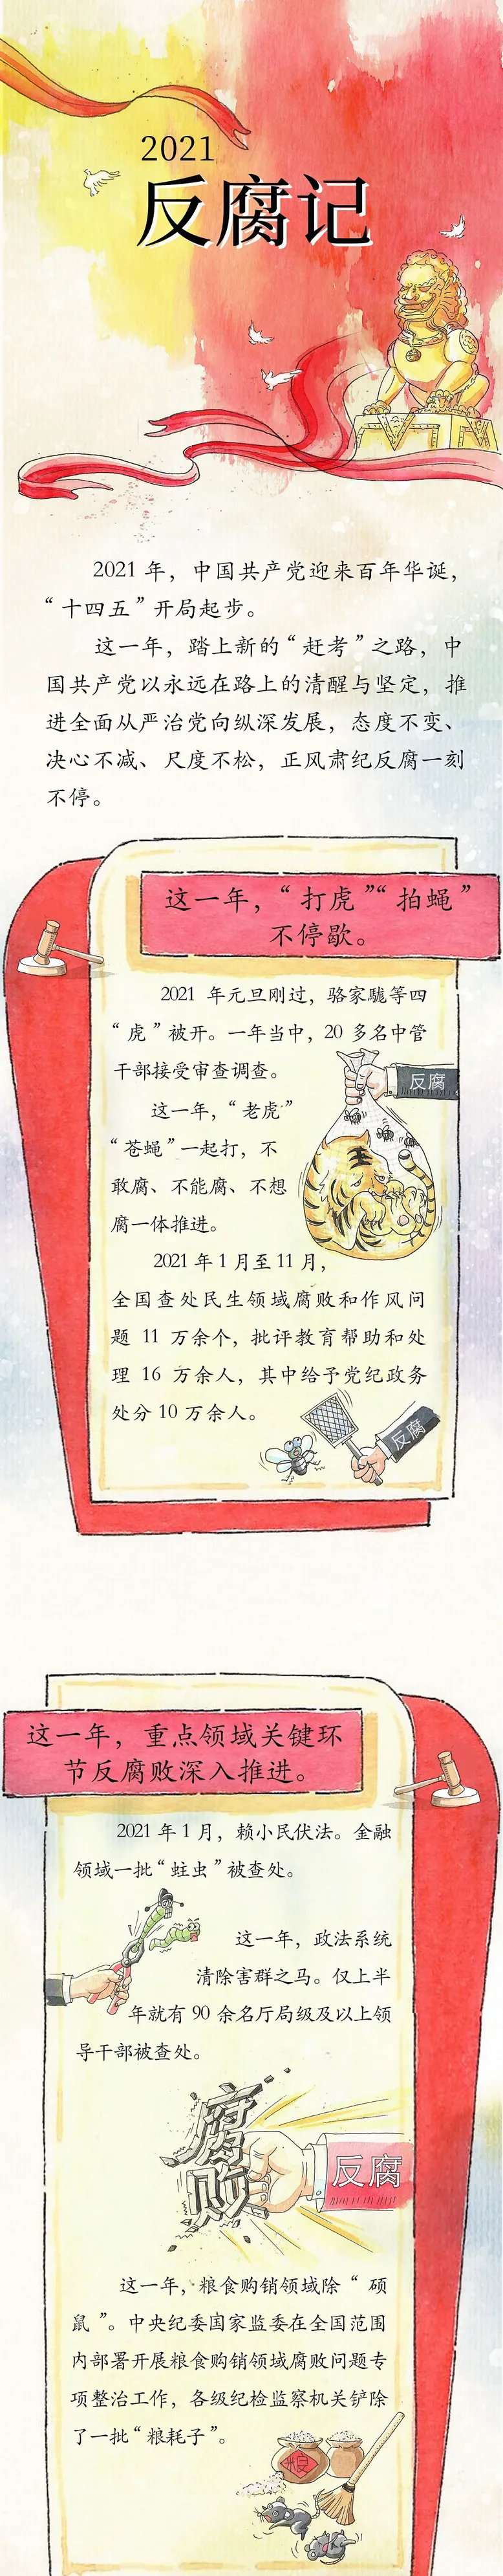 2021
反腐记
2021 年，中国共产党迎来百年华诞，
“十四五”开局起步。
这一年，踏上新的“赶考”之路，中
国共产党以永远在路上的清醒与坚定，推
进全面从严治党向纵深发展，态度不变、
决心不减、尺度不松，正风肃纪反腐一刻
不停。
这一年，“打虎”“拍蝇”
不停歇。
2021 年元旦刚过，骆家駹等四
“虎”被开。一年当中，20 多名中管
干部接受审查调查。
反腐
这一年，“老虎”
“苍蝇”一起打，不
敢腐、不能腐、不想
腐一体推进。
2021 年 1 月至 11 月，
全国查处民生领域腐败和作风问
题 11 万余个，批评教育帮助和处
理 16 万余人，其中给予党纪政务
处分 10 万余人。
反腐
这一年，重点领域关键环
节反腐败深入推进。
2021 年 1 月，赖小民伏法。金融
领域一批“蛀虫”被查处。
这一年，政法系统
清除害群之马。仅上半
年就有 90 余名厅局级及以上领
导干部被查处。
腐败
反腐
这一年，粮食购销领域除“硕
鼠”。中央纪委国家监委在全国范围
内部署开展粮食购销领域腐败问题专
项整治工作，各级纪检监察机关铲除
了一批“粮耗子”。
粮